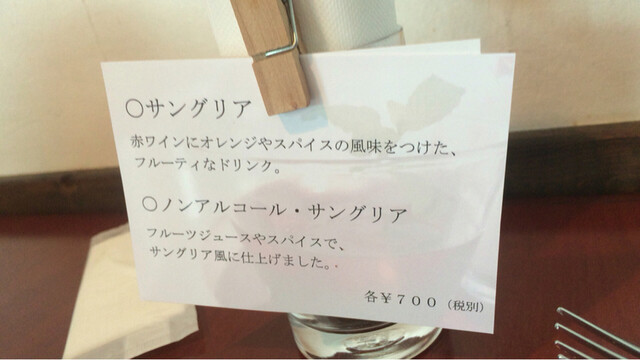 ○サングリア
赤ワインにオレンジやスパイスの風味をつけた、
フルーティなドリンク。
○ノンアルコール・サングリア
フルーツジュースやスパイスで、
サングリア風に仕上げました。
各￥７００（税別）